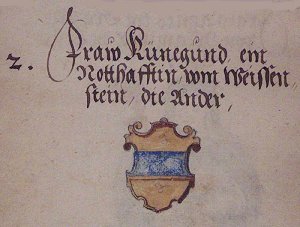 2. Fraw Künegund, ein
Notthafftin, vom Weissen,
stein, die Ander,